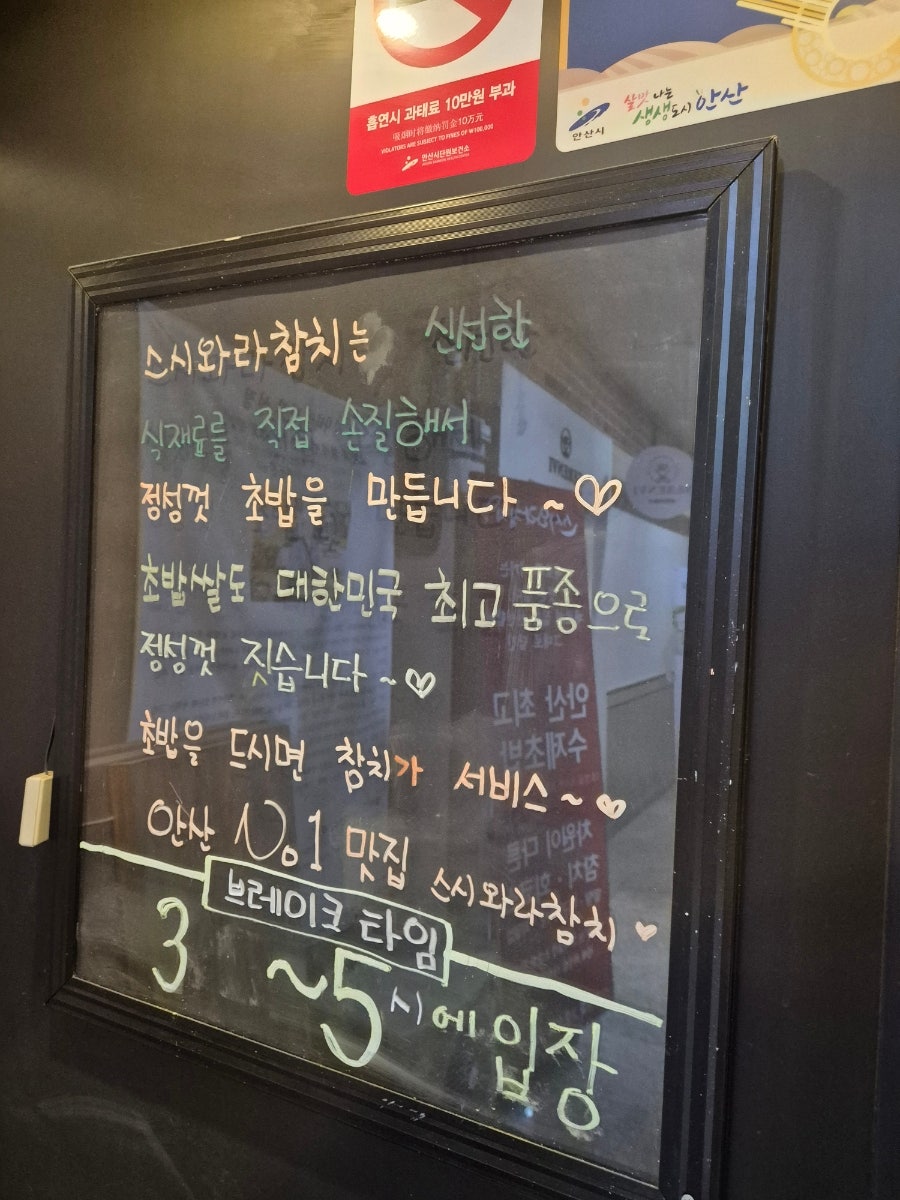 흡연시 과태료 10만원 부과
吸烟时将缴纳罚金10万元
VIOLATORS ARE SUBJECT TO FINES OF ₩100,000
안산시단원보건소
안산시
살맛나는
생생도시 안산
스시와라참치는 신선한
식재료를 직접 손질해서
정성껏 초밥을 만듭니다 ~♡
초밥쌀도 대한민국 최고 품종으로
정성껏 짓습니다 ~♡
초밥을 드시면 참치가 서비스 ~♡
안산 No1 맛집 스시와라참치 ♥
브레이크 타임
3 ~5시에 입장
안산 최고
수제초밥
차원이 다른